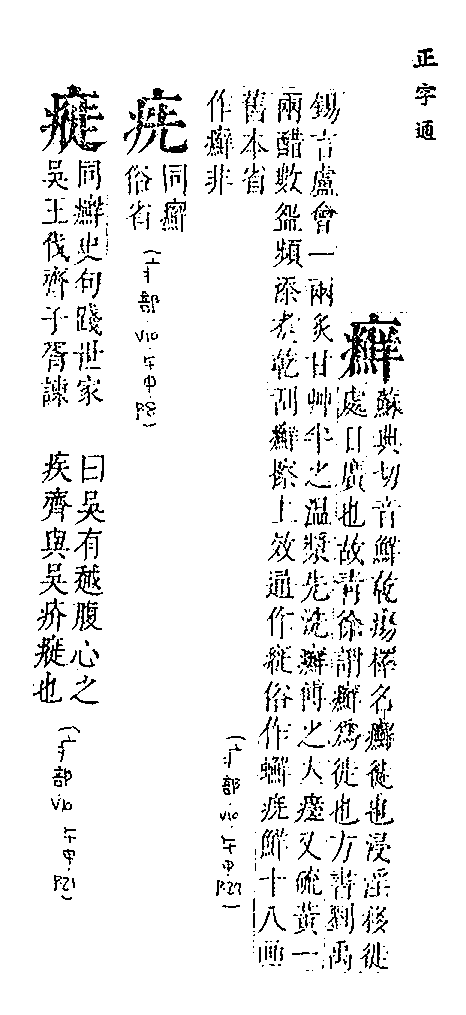 正字通
癬
蘇典切音鮮乾瘍釋名癬徙也浸淫移徙
處日廣也故青徐謂癬爲徙也方書劉禹
錫言盧會一兩炙甘艸半之温漿先洗癬傅之大瘥又硫黃一
兩醋數 頻添煮乾刮癬擦上效通作㾛俗作 㾌 十八畫
舊本省
作癬非
(疒部 V10 午中 P27)
㾌
同癬
俗省
(疒部 V10 午中 P8)
㾛
同癬史句踐世家
吳王伐齊子胥諫
曰吳有越腹心之
疾齊與吳疥㾛也
(疒部 V10 午中 P21)